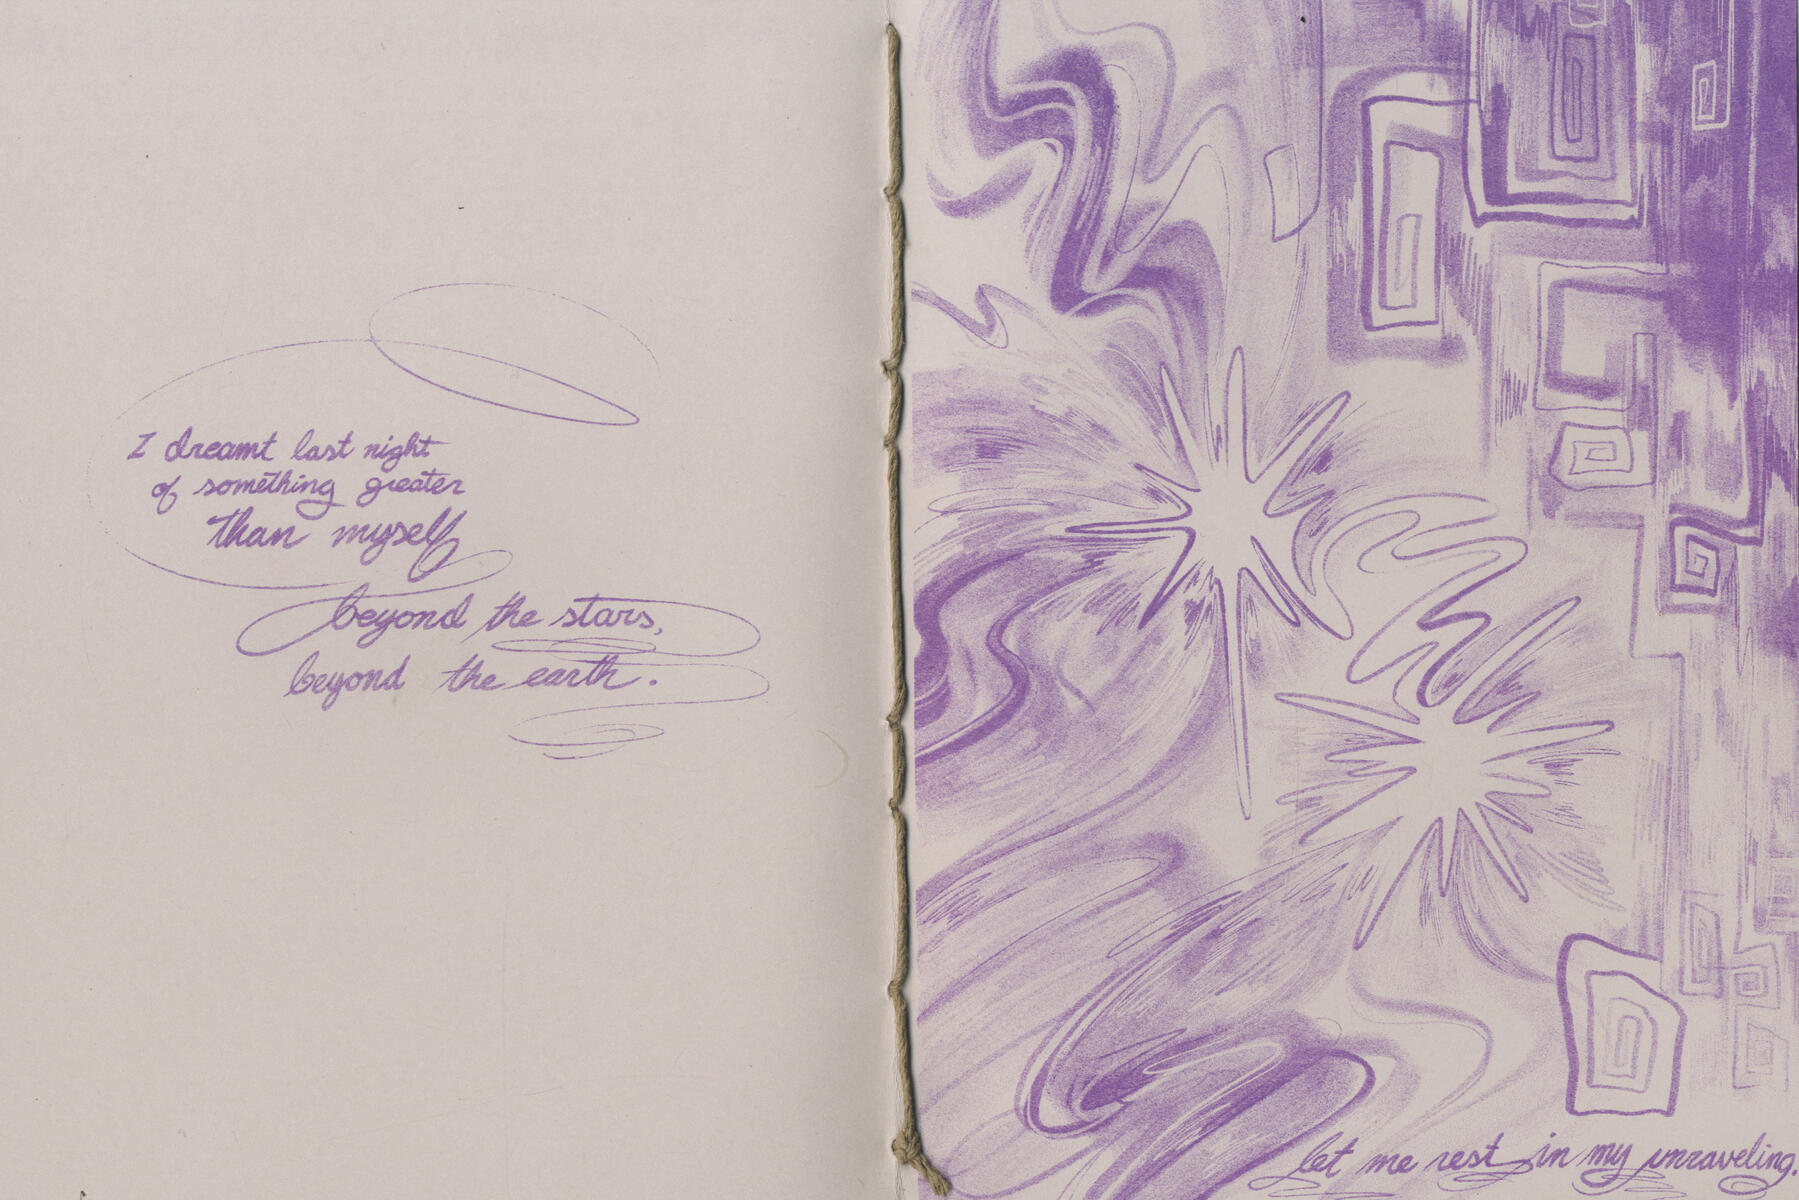 I dreamt last night
of something greater
than myself
beyond the stars,
beyond the earth.
let me rest in my unraveling.